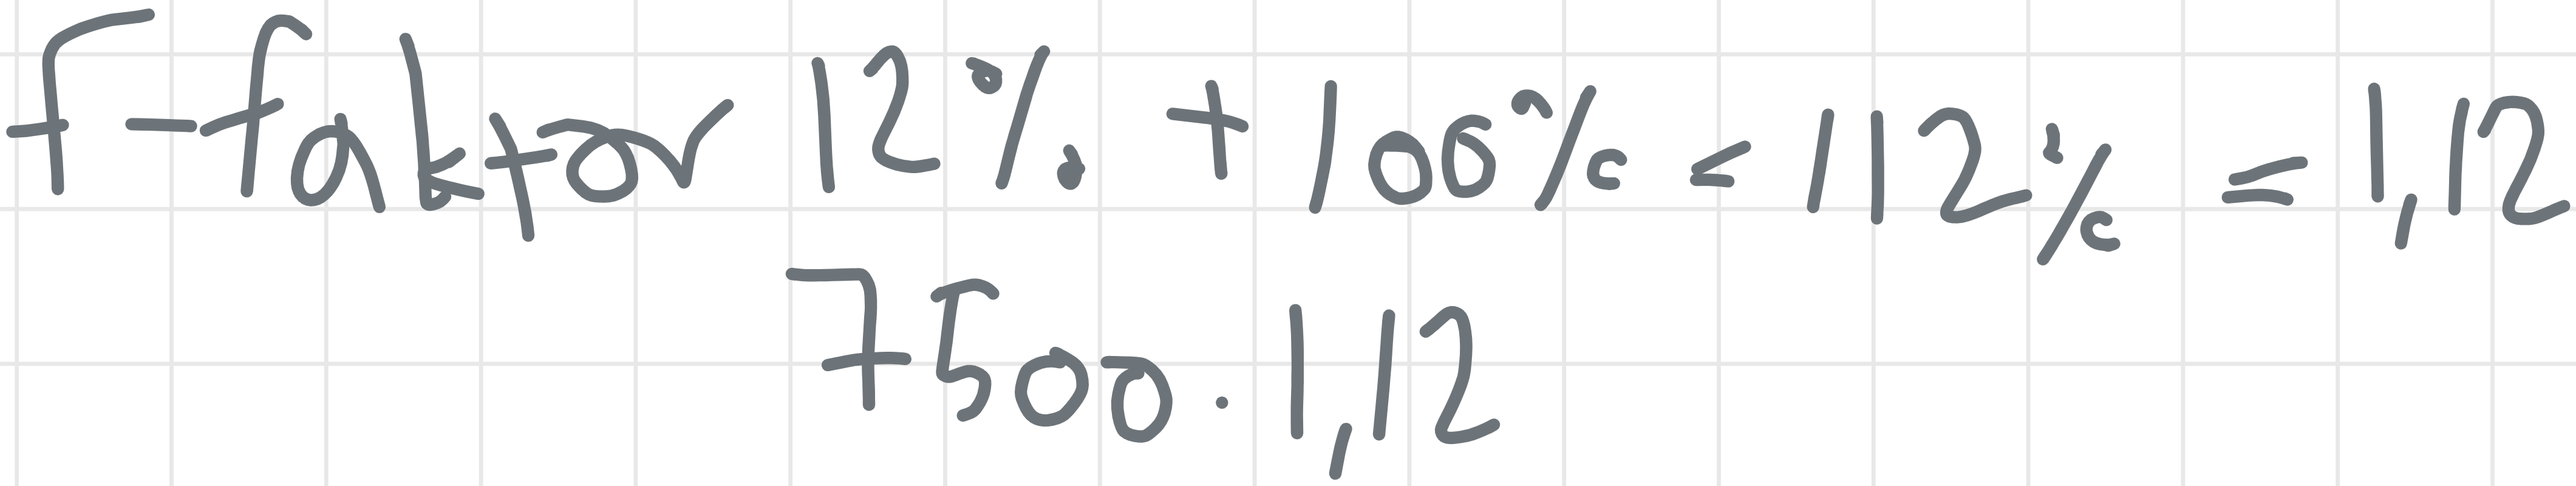 F-faktor 12% + 100% = 112% = 1,12
7500 · 1,12